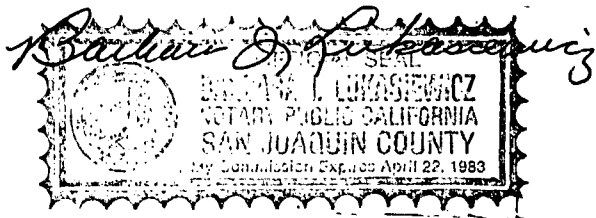 Barbara J. Lukasiewicz
OFFICIAL SEAL
BARBARA J. LUKASIEWICZ
NOTARY PUBLIC CALIFORNIA
SAN JOAQUIN COUNTY
My Commission Expires April 22, 1983